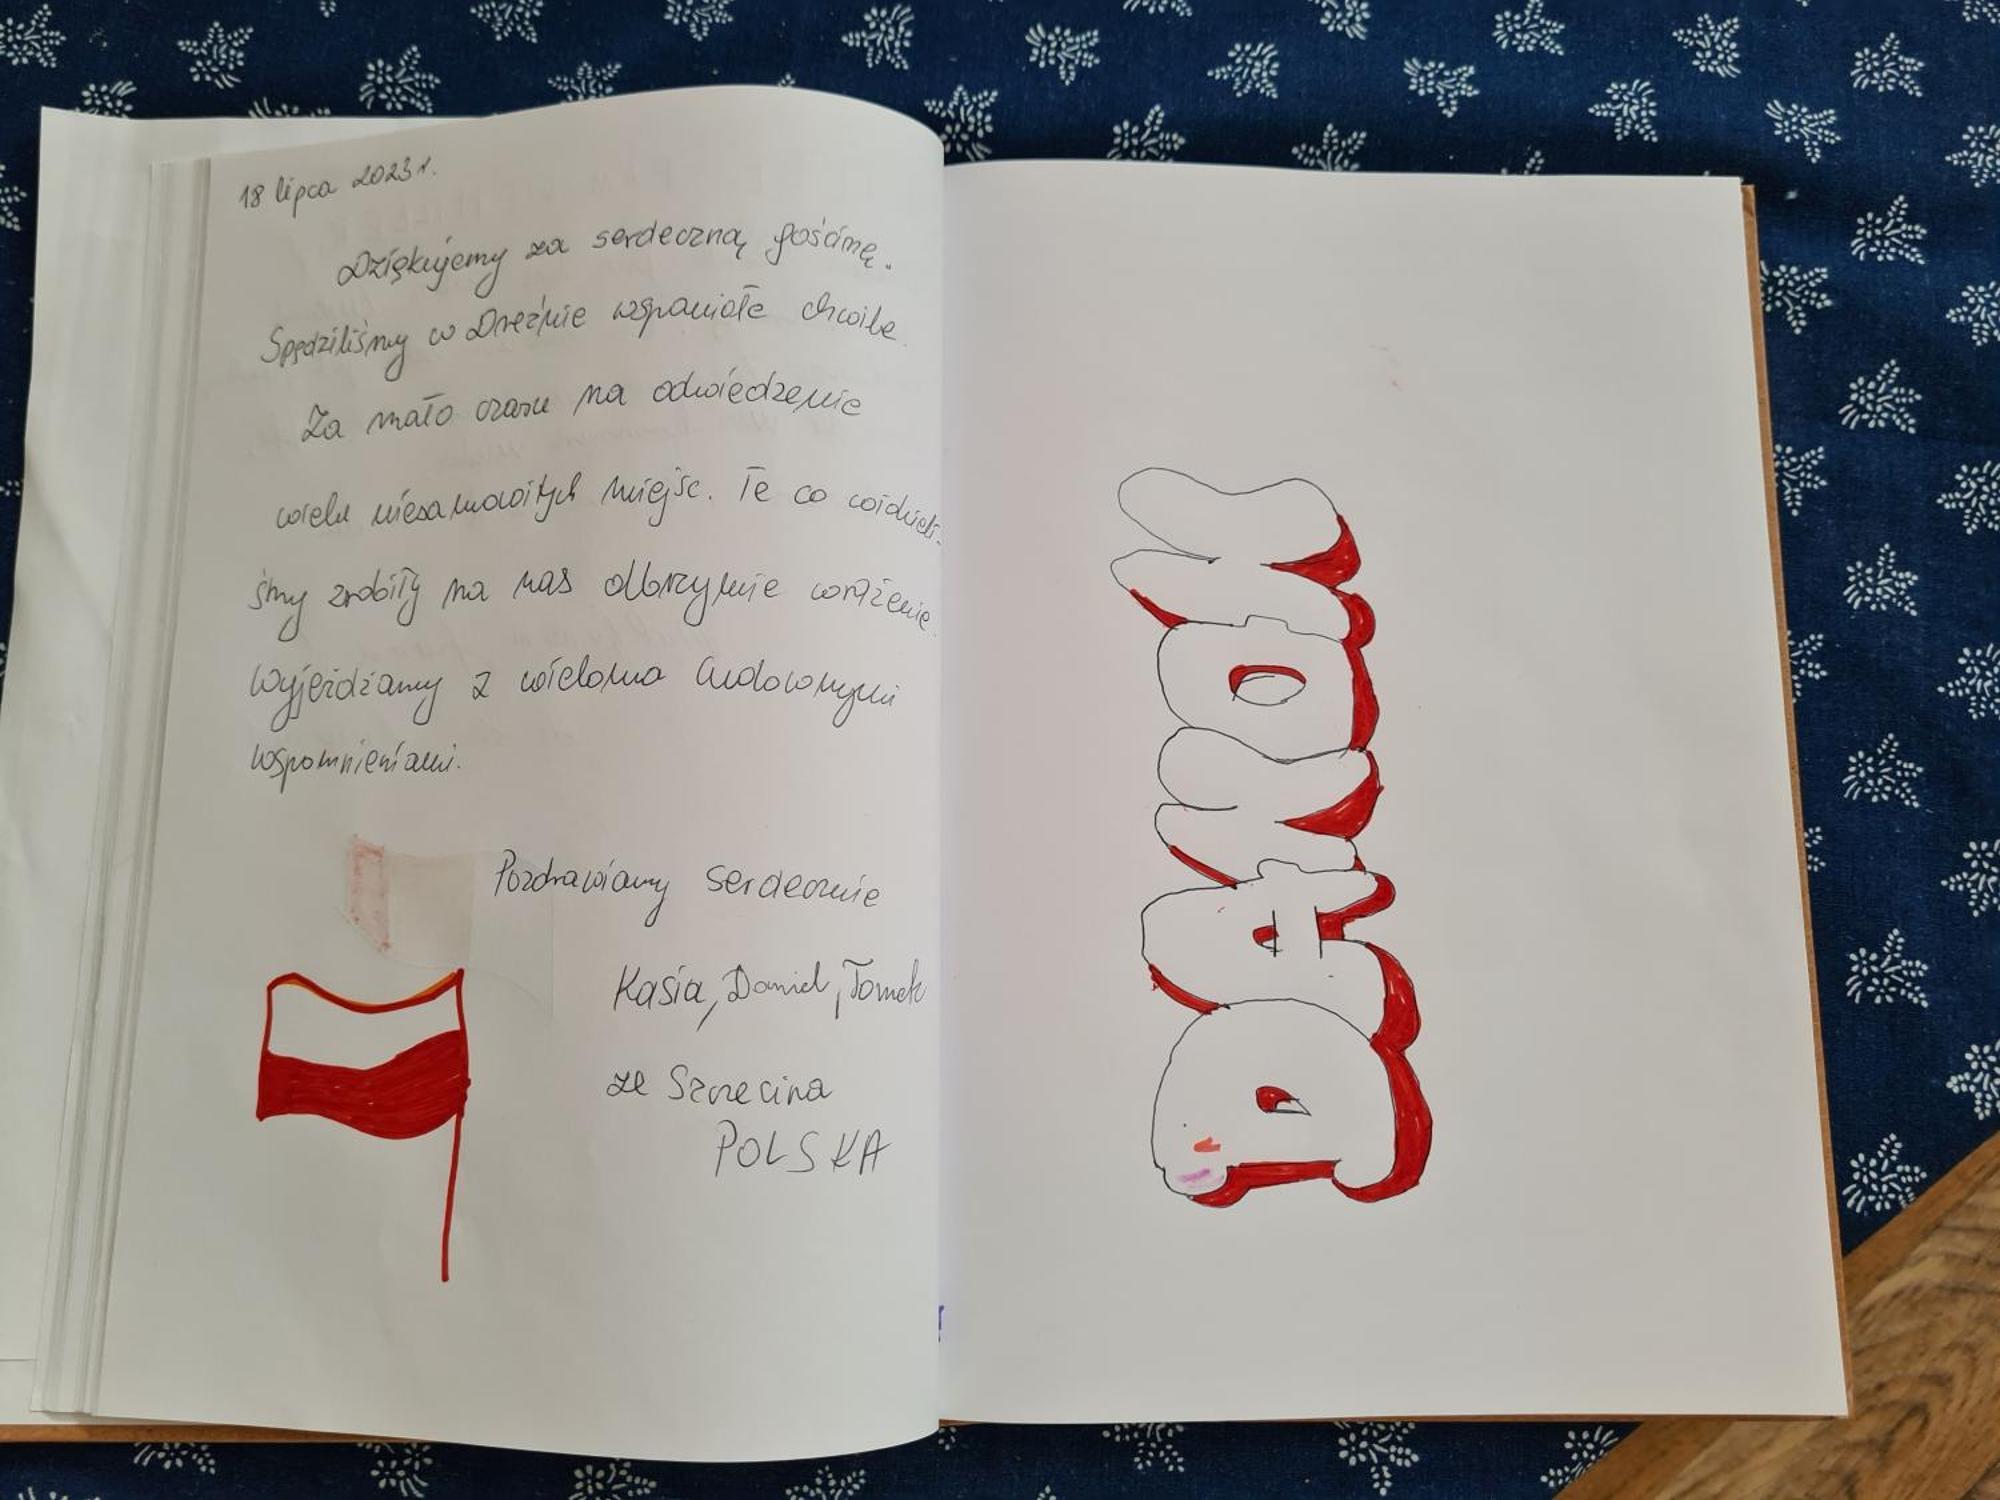 18 lipca 2023 r.
Dziękujemy za serdeczną gościnę.
Spędziliśmy w Dreźnie wspaniałe chwile.
Za mało czasu na odwiedzenie
wielu niesamowitych miejsc. Te co widzieli-
śmy zrobiły na nas olbrzymie wrażenie.
Wyjeżdżamy z wieloma cudownymi
wspomnieniami.
Pozdrawiamy serdecznie
Kasia, Daniel, Tomek
ze Szczecina
POLSKA